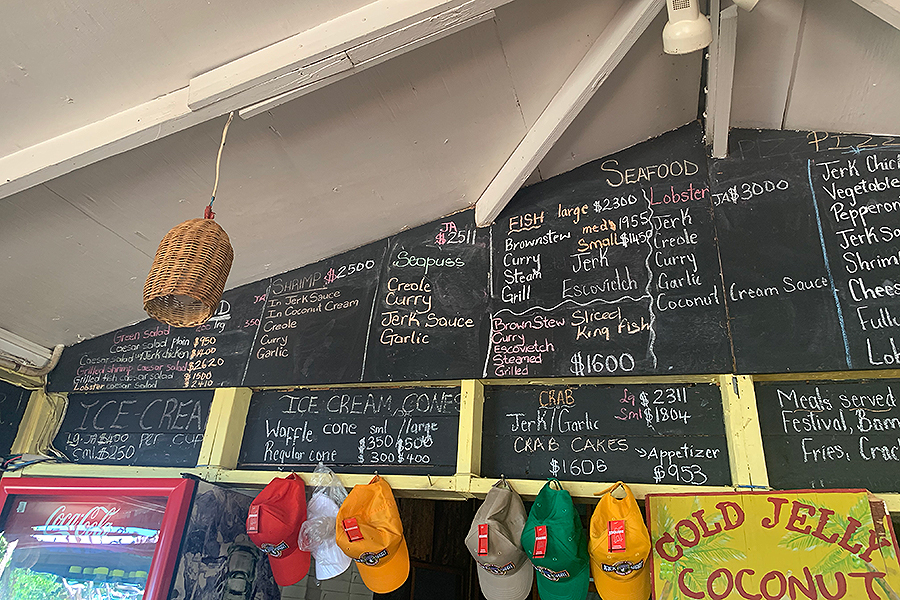 Green Salad
Caesar salad plain $950
Caesar salad w/ Jerk chicken
Grilled shrimp caesar salad $2620
Grilled fish caesar salad $1500
Lobster caesar salad $2410
JA
350
SHRIMP $2500
In Jerk Sauce
In Coconut Cream
Creole
Curry
Garlic
JA
$2511
Seapuss
Creole
Curry
Jerk Sauce
Garlic
SEAFOOD
FISH large $2300
med $1955
Small $1450
Brownstew
Curry
Steam
Grill
Jerk
Escovich
Brown Stew
Curry
Escovietch
Steamed
Grilled
Sliced
King Fish
$1600
Lobster JA $3000
Jerk
Creole
Curry
Garlic
Coconut Cream Sauce
Jerk Chic
Vegetable
Pepperon
Jerk Sa
Shrim
Chees
Full
Lob
ICE CREA
Lg JA $400 Per cup
Sml $250
ICE CREAM CONES
Waffle cone sml/large
$350 $500
Regular cone $300 $400
CRAB
Jerk/Garlic
Lg $2311
Sml $1804
CRAB CAKES
$1606
Appetizer
$953
Meals served
Festival, Bam
Fries, Crac
Coca-Cola
COLD JELLY
COCONUT